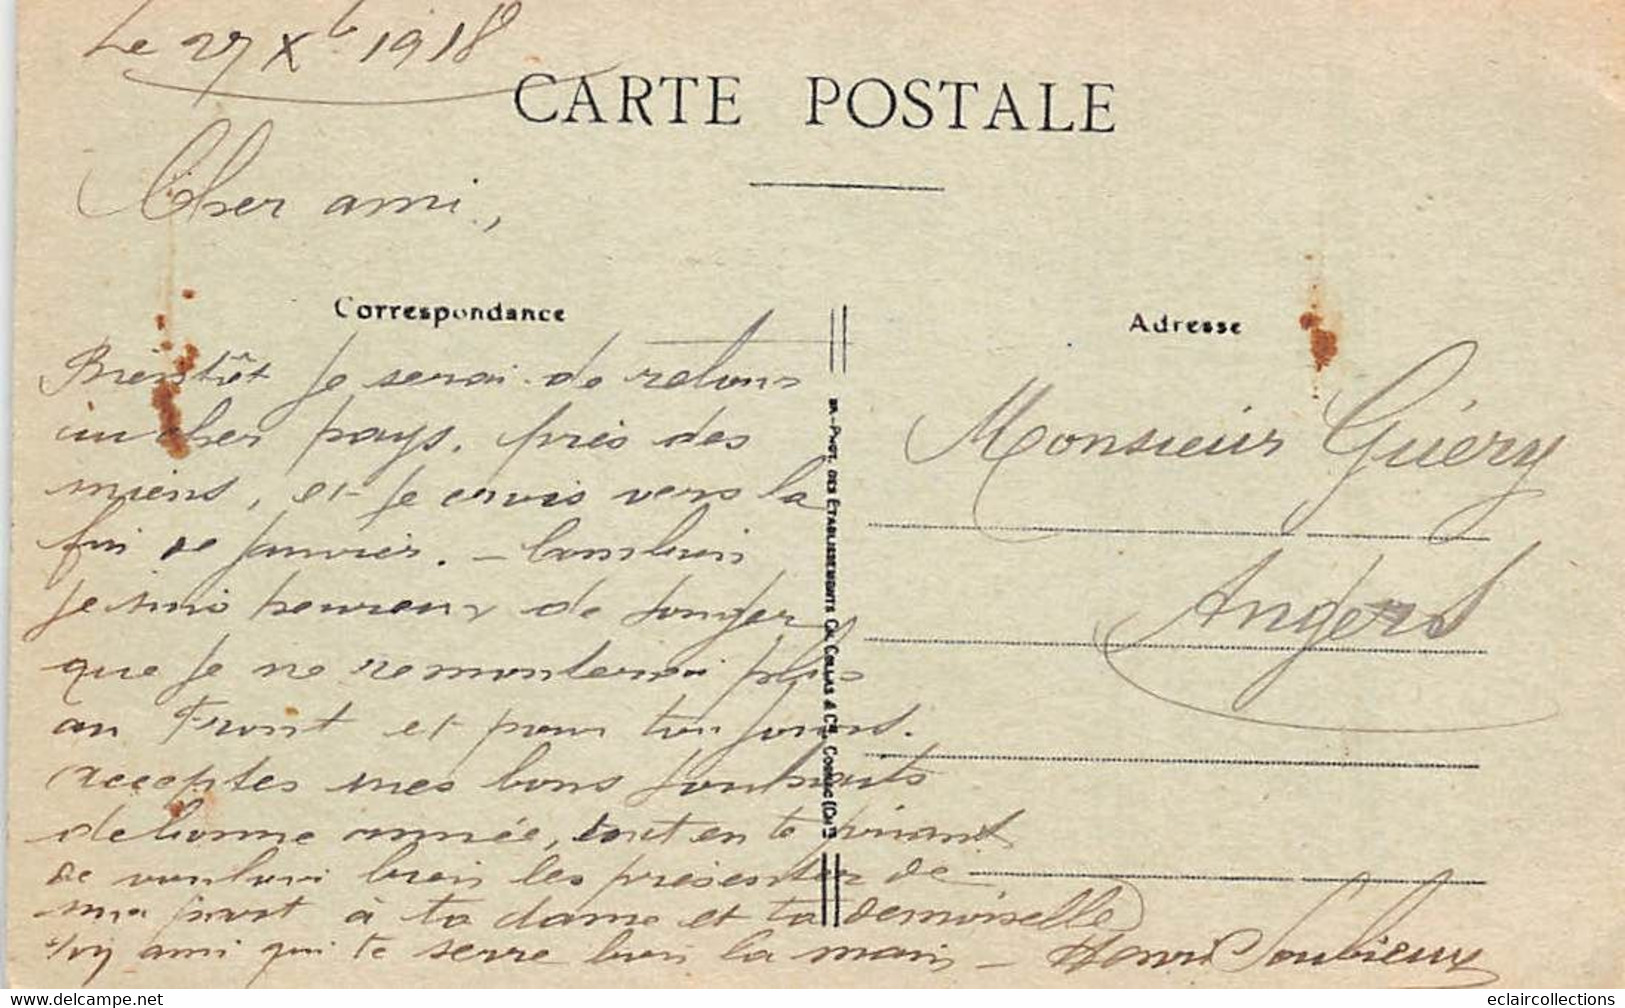 Le 27 Xb 1918
CARTE POSTALE
Cher ami,
Correspondance
Adresse
Bientôt je serai de retour
au cher pays, près des
miens, et je crois vers la
fin de janvier. — Combien
je suis heureux de songer
que je ne remonterai plus
au Front et pour toujours.
acceptes mes bons souhaits
de bonne année, tout en te priant
de vouloir bien les présenter de
ma part à ta dame et ta demoiselle
ami qui te serre bien la main — Henri Soubieux
Monsieur Guéry
Angers
PHOT. DES ETABLISSEMENTS CH. COLLAS & Cie, COGNAC (Ch.)
delcampe.net
eclaircollections